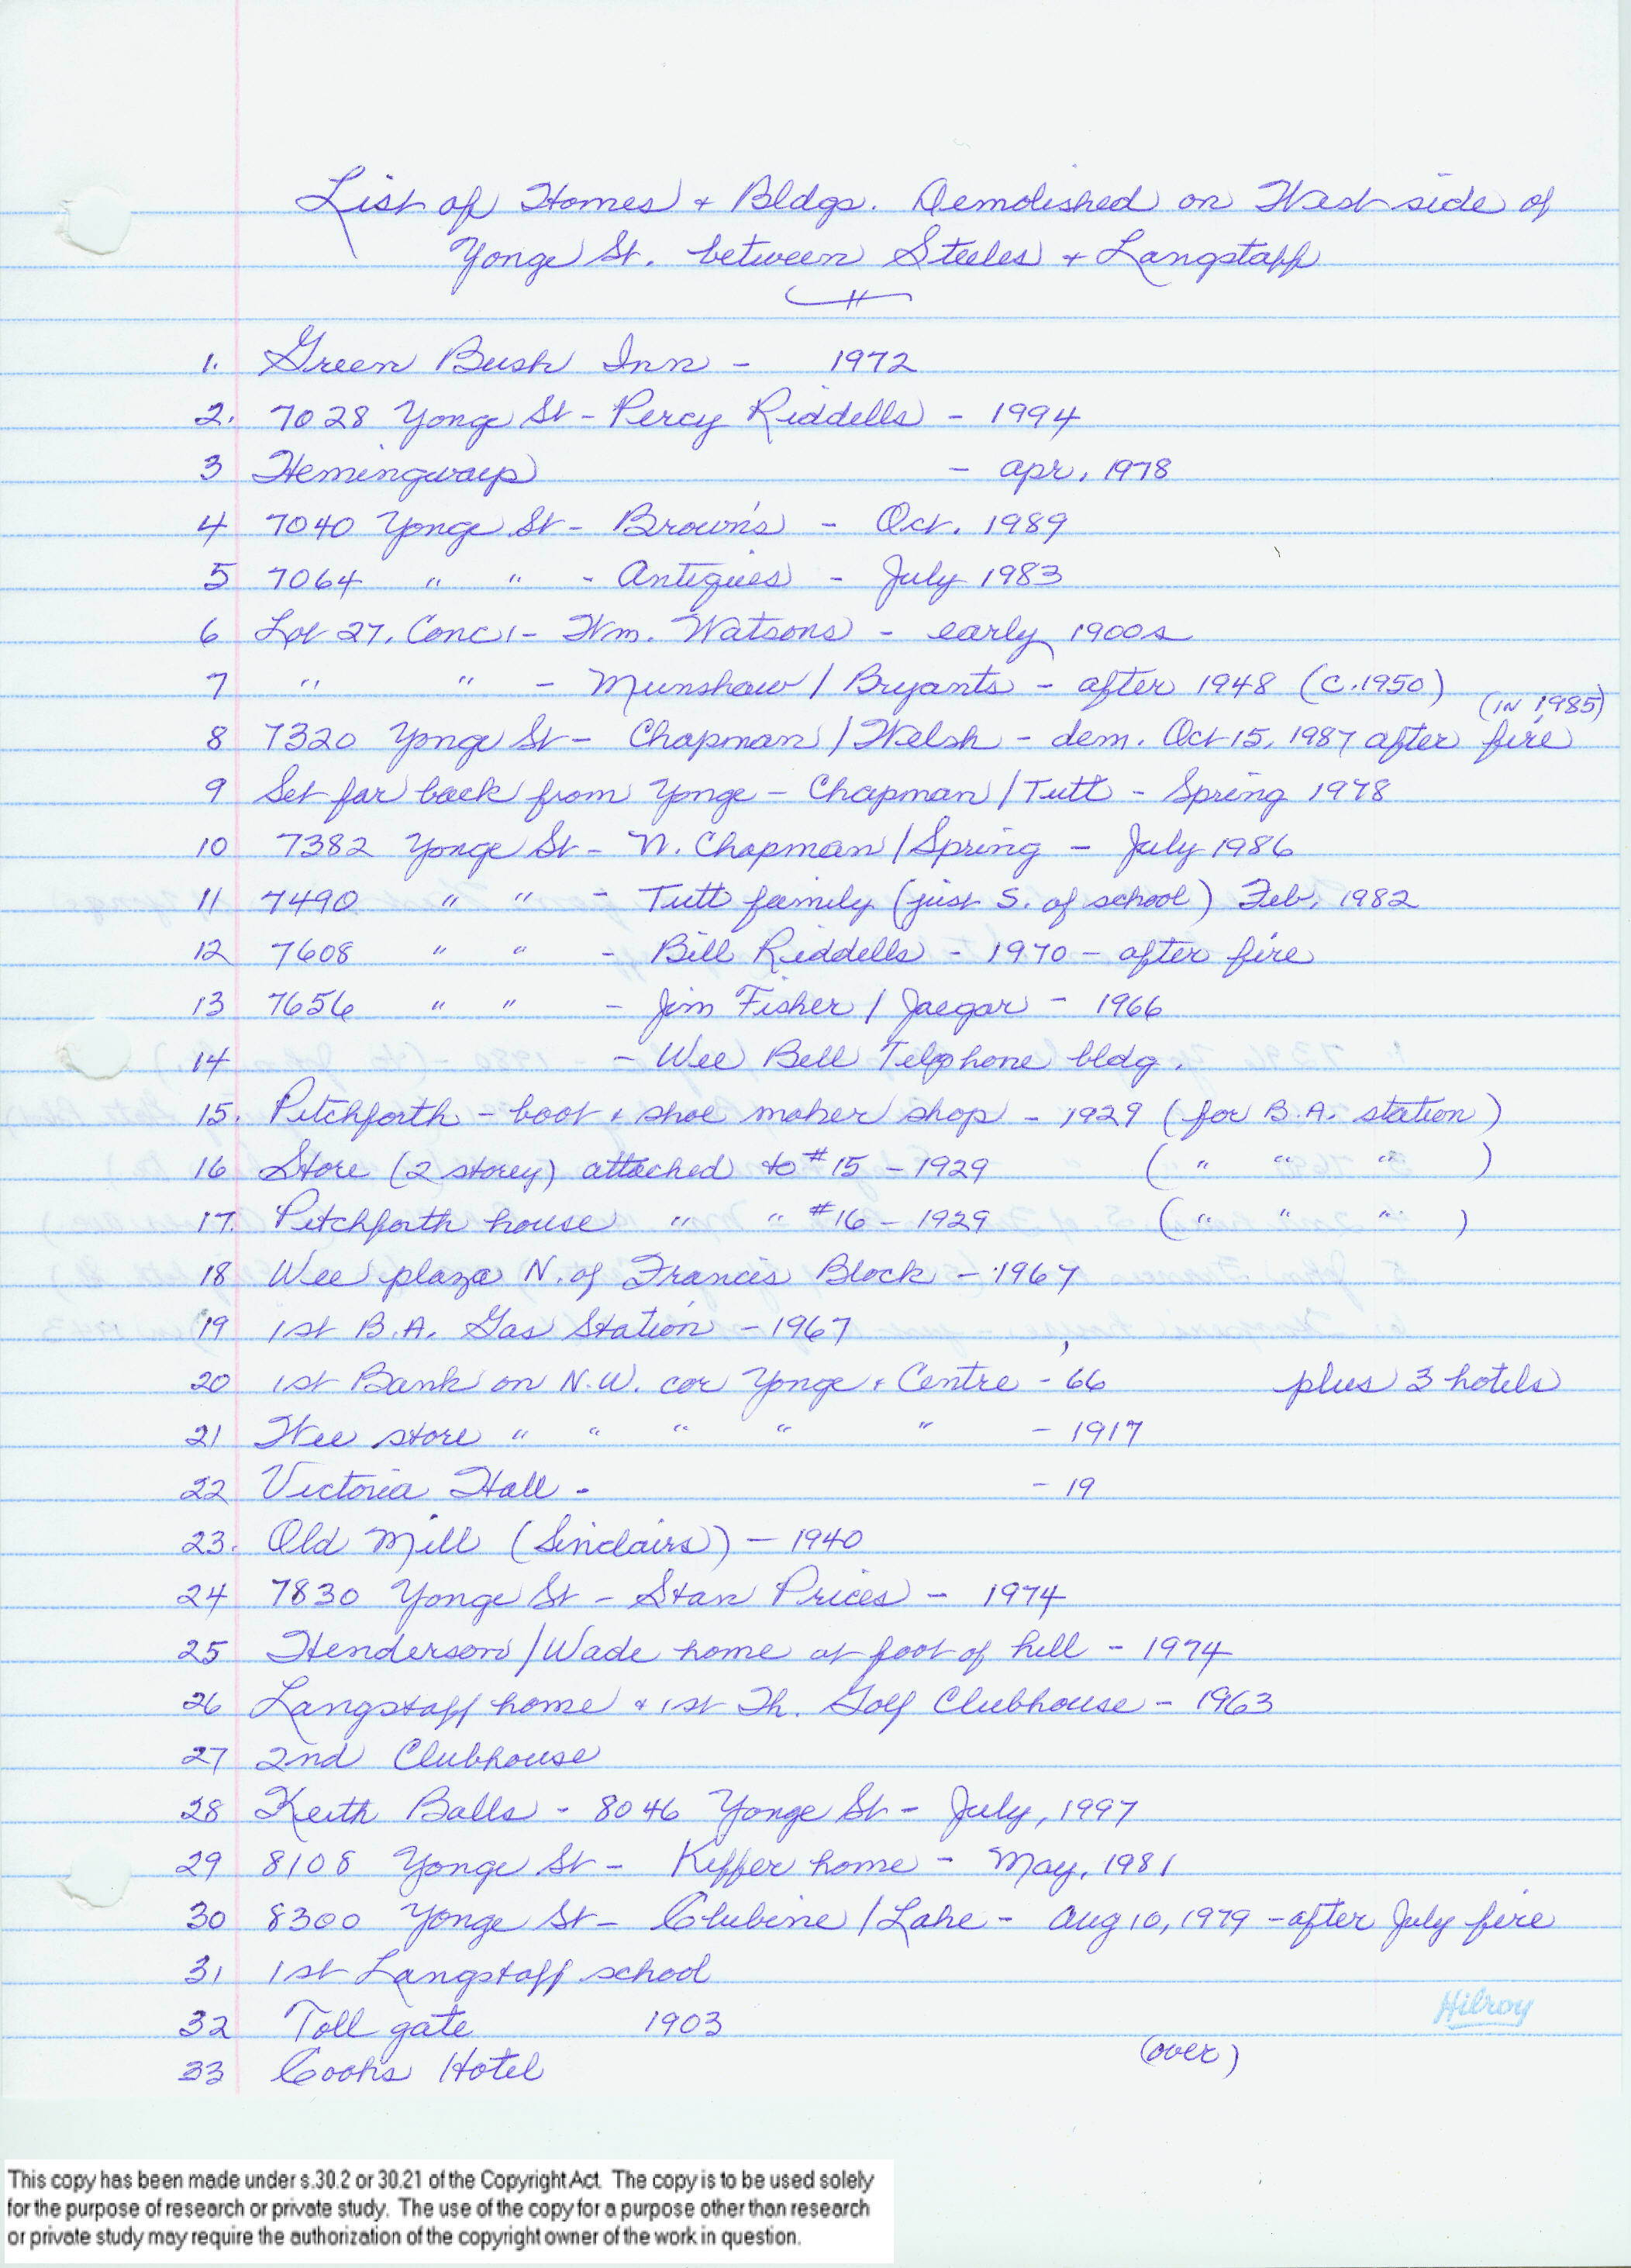 List of Homes + Bldgs. Demolished on West side of
Yonge St. between Steeles + Langstaff
1. Green Bush Inn - 1972
2. 7028 Yonge St - Percy Riddells - 1994
3 Hemingways - Apr. 1978
4 7040 Yonge St - Brown's - Oct. 1989
5 7064 " " - Antiques - July 1983
6 Lot 27, Conc 1 - Wm. Watsons - early 1900s
7 " " - Munshaw / Bryants - after 1948 (c. 1950)
(IN 1985)
8 7320 Yonge St - Chapman / Welsh - dem. Oct 15, 1987 after fire
9 Set far back from Yonge - Chapman / Tutt - Spring 1978
10 7382 Yonge St - N. Chapman / Spring - July 1986
11 7490 " " - Tutt family (just S. of school) Feb. 1982
12 7608 " " - Bill Riddells - 1970 - after fire
13 7656 " " - Jim Fisher / Jaegar - 1966
14 - Wee Bell Telephone bldg.
15. Pitchforth - boot + shoe maker shop - 1929 (for B.A. station)
16 Store (2 storey) attached to #15 - 1929 ( " " " )
17. Pitchforth house " " #16 - 1929 ( " " " )
18 Wee plaza N. of Francis Block - 1967
19 1st B.A. Gas Station - 1967
20 1st Bank on N.W. cor Yonge + Centre - 66 plus 3 hotels
21 Wee store " " " " " - 1917
22 Victoria Hall - - 19
23. Old Mill (Sinclairs) - 1940
24 7830 Yonge St - Stan Prices - 1974
25 Henderson / Wade home at foot of hill - 1974
26 Langstaff home + 1st Th. Golf Clubhouse - 1963
27 2nd Clubhouse
28 Keith Balls - 8046 Yonge St - July, 1997
29 8108 Yonge St - Keffer home - May, 1981
30 8300 Yonge St - Clubine / Lake - Aug 10, 1979 - after July fire
31 1st Langstaff school
Hilroy
32 Toll gate 1903
33 Cooks Hotel
(over)
This copy has been made under s.30.2 or 30.21 of the Copyright Act. The copy is to be used solely
for the purpose of research or private study. The use of the copy for a purpose other than research
or private study may require the authorization of the copyright owner of the work in question.